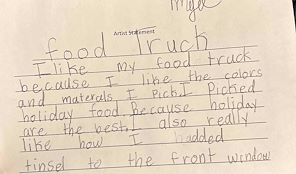 Myla
Artist Statement
food Truck
I like my food truck
because I like the colors
and materals I pick.I Picked
holiday food.because holiday
are the best. I also really
like how I hadded
tinsel to the front window